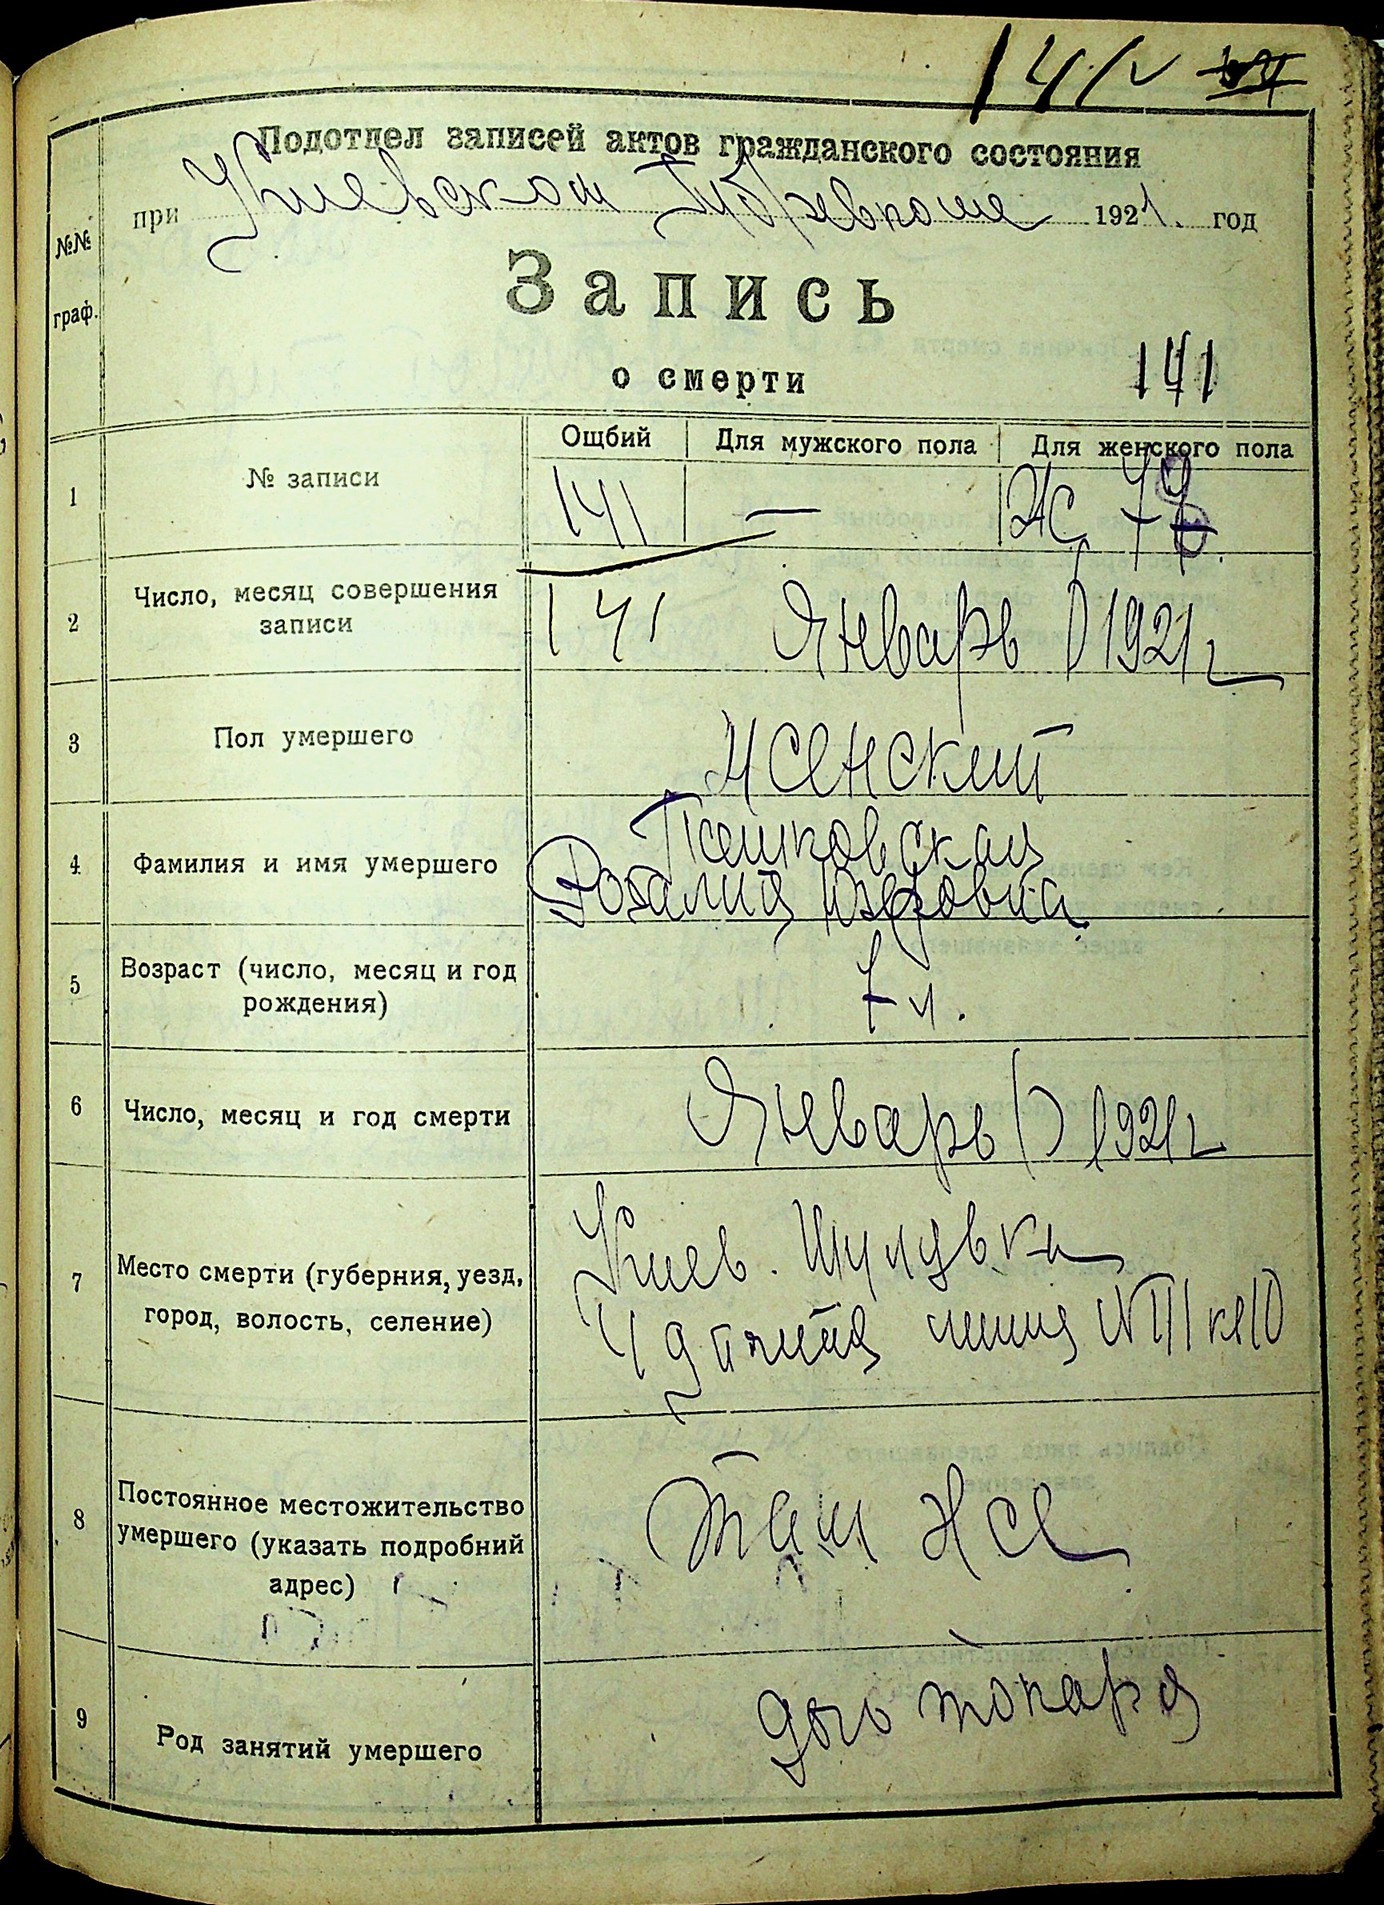 141
Подотдел записей актов гражданского состояния
при Киевском Губревкоме 1921. год
№№ граф.
Запись
о смерти
141
Ощбий Для мужского пола Для женского пола
1 № записи 141 — Ж
2 Число, месяц совершения
записи
141 Январь 1921 г
3 Пол умершего Женский
4 Фамилия и имя умершего
Розалия
5 Возраст (число, месяц и год
рождения)
7
6 Число, месяц и год смерти Январь 1921 г
7 Место смерти (губерния, уезд,
город, волость, селение)
Киев. Шулявка
линия № III кв 10
8 Постоянное местожительство
умершего (указать подробний
адрес)
Там же
9 Род занятий умершего дочь токаря